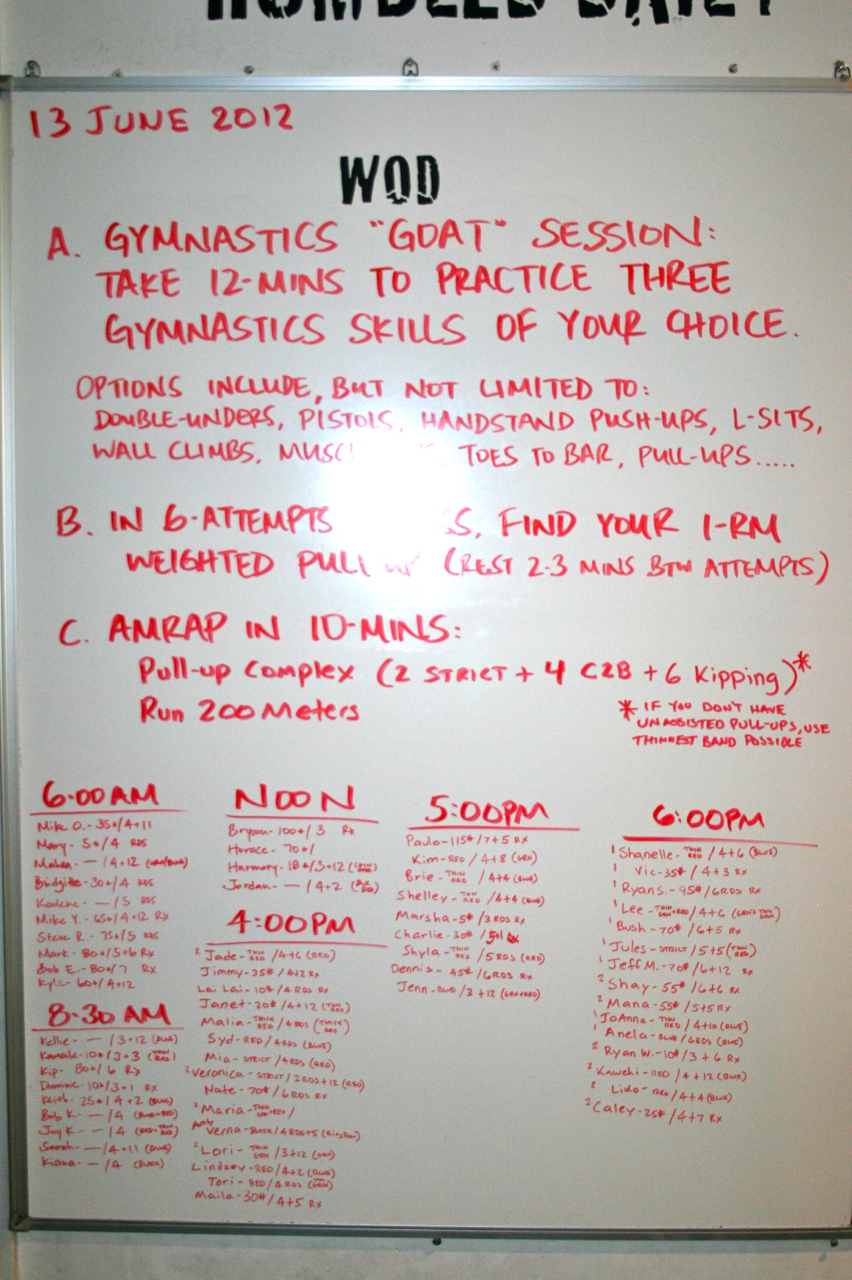 HUMBLED DAILY
13 JUNE 2012
WOD
A. GYMNASTICS "GOAT" SESSION:
TAKE 12-MINS TO PRACTICE THREE
GYMNASTICS SKILLS OF YOUR CHOICE.
OPTIONS INCLUDE, BUT NOT LIMITED TO:
DOUBLE-UNDERS, PISTOLS, HANDSTAND PUSH-UPS, L-SITS,
WALL CLIMBS, TOES TO BAR, PULL-UPS.....
B. IN 6-ATTEMPTS FIND YOUR 1-RM
WEIGHTED PULL UP (REST 2-3 MINS BTW ATTEMPTS)
C. AMRAP IN 10-MINS:
Pull-up Complex (2 STRICT + 4 C2B + 6 Kipping)*
Run 200 Meters
* IF YOU DON'T HAVE
UNASSISTED PULL-UPS, USE
THINNEST BAND POSSIBLE
6:00AM
Mike O. - 35#/4+11
Mary - 5#/4 RDS
- — /4+12
Bridgite - 30#/4 RDS
- — /5 RDS
Mike Y. - 65#/4+12 Rx
Steve R. - 75#/5 RDS
Mark - 80#/5+6 Rx
Bob E. - 80#/7 Rx
Kyle - 60#/4+12
8:30AM
Kellie - — /3+12 (BLUE)
10#/3+3
Kip - 80#/6 Rx
Dominic - 10#/3+1 Rx
Keith - 25#/4+2 (BLUE)
Bob K. - — /4
Joy K. - — /4
Sarah - — /4+11 (BLUE)
Kiana - — /4 (BLACK)
NOON
Bryson - 100#/3 Rx
Horace - 70#/
Harmony - 18#/3+12
Jordan - — /4+2
4:00PM
2 Jade - THIN RED /4+6 (RED)
Jimmy - 35#/4+12 Rx
La Lai - 10#/4 RDS Rx
Janet - 20#/4+12 (THIN RED)
Malia - THICK RED /4 RDS (THICK RED)
Syd - RED/4 RDS (BLUE)
Mia - STRICT /4 RDS (RED)
2 Veronica - STRICT /2 RDS+12 (RED)
Nate - 70#/6 RDS Rx
2 Maria -
Verna - BLACK/4 RDS+5
2 Lori - THIN GRN /3+12 (GRN)
Lindsey - RED/4+2 (BLUE)
Tori - RED/4 RDS
Maila - 30#/4+5 Rx
5:00PM
Paulo - 115#/7+5 Rx
Kim - RED /4+8 (GRN)
Brie - THIN RED /4+4 (BLUE)
Shelley - THIN RED /4+4 (BLUE)
Marsha - 5#/3 RDS Rx
Charlie - 30#/
Shyla - THIN RED /5 RDS (RED)
Dennis - 45#/6 RDS Rx
Jenn - BLUE/3+12 (GRN+RED)
6:00PM
1 Shanelle - THIN RED /4+6 (BLUE)
1 Vic - 35#/4+3 Rx
1 Ryan S. - 95#/6 RDS Rx
1 Lee - THIN GRN+RED /4+6 (GRN+THIN GRN)
1 Bush - 70#/6+5 Rx
1 Jules - STRICT /5+5 (THIN RED)
1 Jeff M. - 70#/6+12 Rx
2 Shay - 55#/6+6 Rx
2 Mana - 55#/5+5 Rx
1 JoAnna - THIN RED /4+10 (BLUE)
1 Anela - BLUE/6 RDS (BLUE)
2 Ryan W. - 10#/3+6 Rx
2 Kawehi - RED /4+12 (BLUE)
2 Liko - RED /4+4 (BLUE)
2 Caley - 25#/4+7 Rx